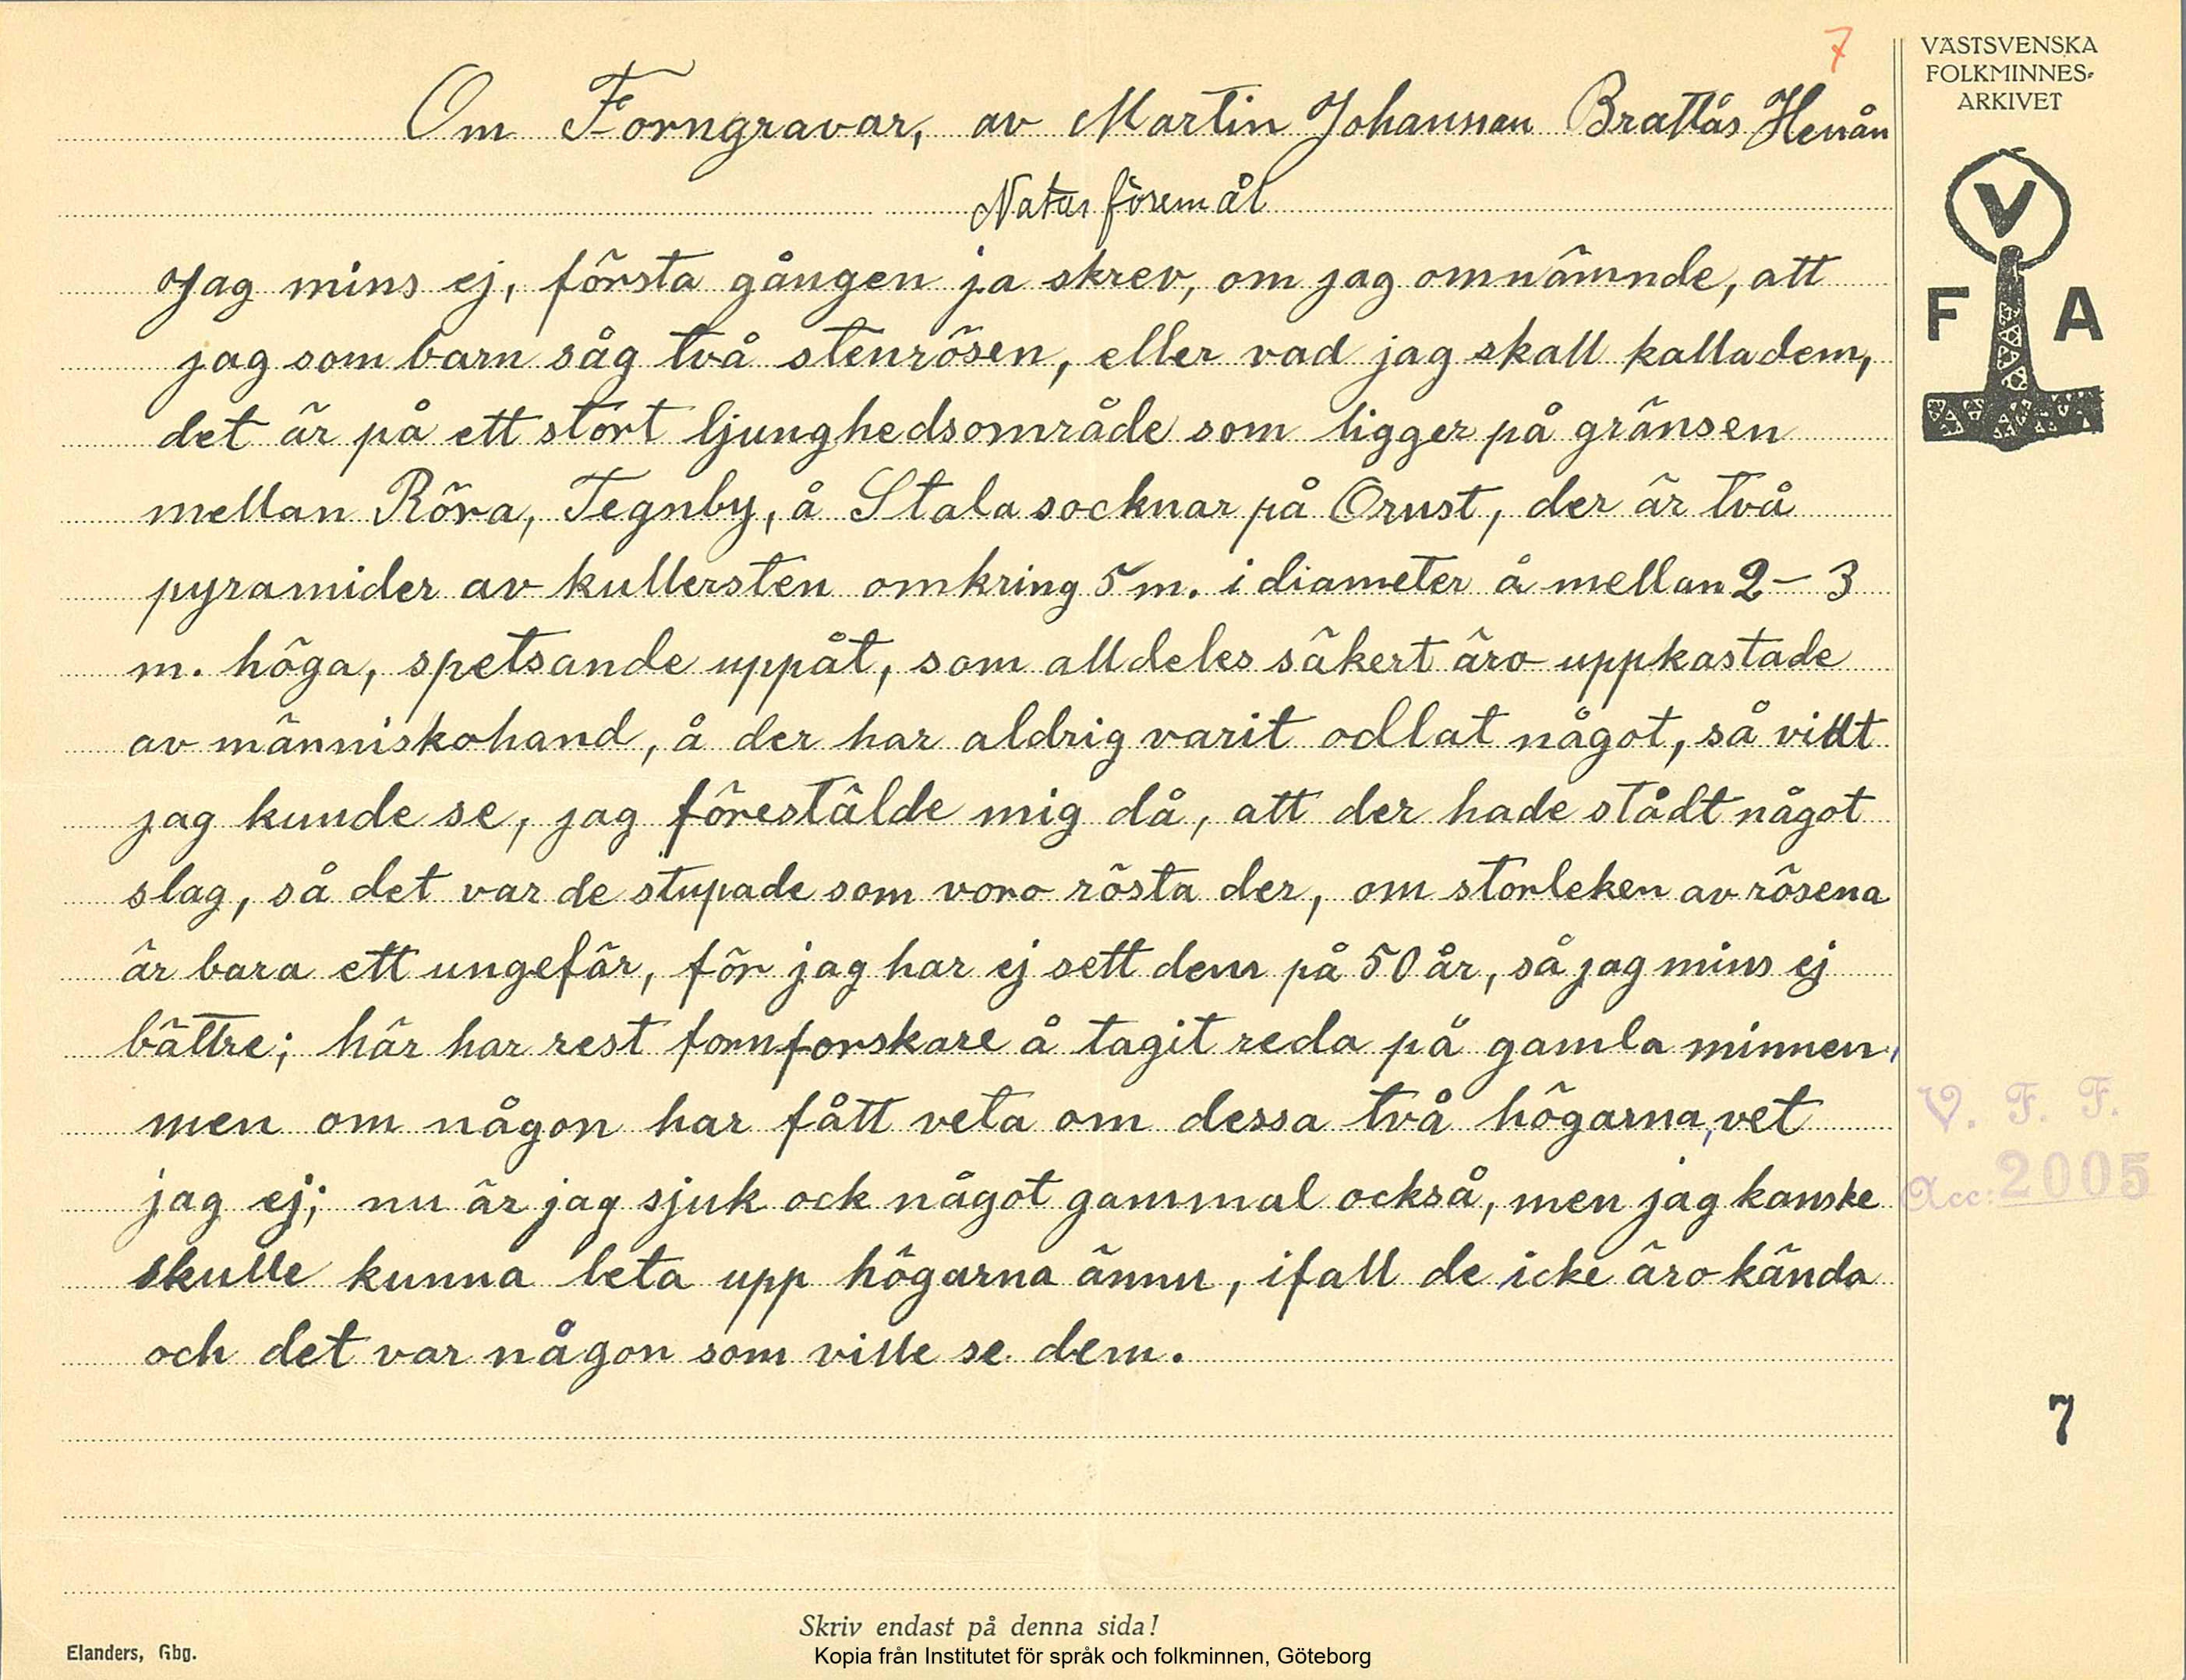 7
VÄSTSVENSKA
FOLKMINNES-
ARKIVET
V
F A
Om Forngravar, av Martin Johansson Brattås Henån
Naturföremål
Jag mins ej, första gången ja skrev, om jag omnämnde, att
jag som barn såg två stenrösen, eller vad jag skall kalla dem,
det är på ett stort ljunghedsområde som ligger på gränsen
mellan Röra, Tegnby, å Stala socknar på Orust, der är två
pyramider av kullersten omkring 5 m. i diameter å mellan 2-3
m. höga, spetsande uppåt, som alldeles säkert äro uppkastade
av människohand, å der har aldrig varit odlat något, så vidt
jag kunde se, jag förestälde mig då, att der hade stådt något
slag, så det var de stupade som voro rösta der, om storleken av rösena
är bara ett ungefär, för jag har ej sett dem på 50 år, så jag mins ej
bättre; här har rest fornforskare å tagit reda på gamla minnen,
men om någon har fått veta om dessa två högarna, vet
jag ej; nu är jag sjuk ock något gammal också, men jag kanske
skulle kunna leta upp högarna ännu, ifall de icke äro kända
och det var någon som ville se dem.
V. F. F.
Acc: 2005
7
Skriv endast på denna sida!
Elanders, Gbg.
Kopia från Institutet för språk och folkminnen, Göteborg